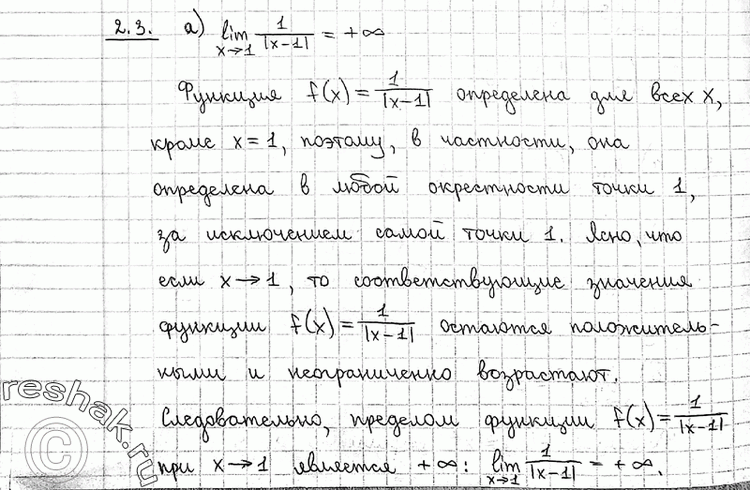 2.3. а) lim x→1 1/|x-1| = +∞
Функция f(x) = 1/|x-1| определена для всех x,
кроме x = 1, поэтому, в частности, она
определена в любой окрестности точки 1,
за исключением самой точки 1. Ясно, что
если x→1, то соответствующие значения
функции f(x) = 1/|x-1| остаются положитель-
ными и неограниченно возрастают.
Следовательно, пределом функции f(x) = 1/|x-1|
при x→1 является +∞: lim x→1 1/|x-1| = +∞.
© reshak.ru